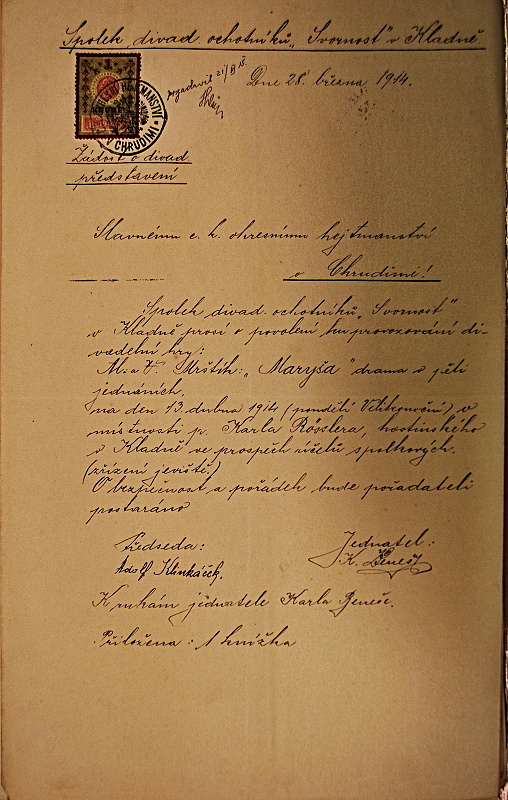 Spolek divad. ochotníků „Svornost" v Kladně.
Dne 28. března 1914.
1
HEJTMANSTVÍ
V CHRUDIMI
Žádost o divad.
představení
Slavnému c. k. okresnímu hejtmanství
v Chrudimi!
Spolek divad. ochotníků „Svornost"
v Kladně prosí o povolení ku provozování di-
vadelní hry:
M. a V. Mrštík: „Maryša" drama v pěti
jednáních,
na den 13. dubna 1914 (pondělí Velikonoční) v
místnosti p. Karla Rösslera, hostinského
v Kladně ve prospěch účelů spolkových.
(zřízení jeviště)
O bezpečnost a pořádek bude pořadateli
postaráno
Předseda:
Jednatel:
Adolf Klinkáček.
K. Beneš
K rukám jednatele Karla Beneše.
Přiložena: 1 knížka